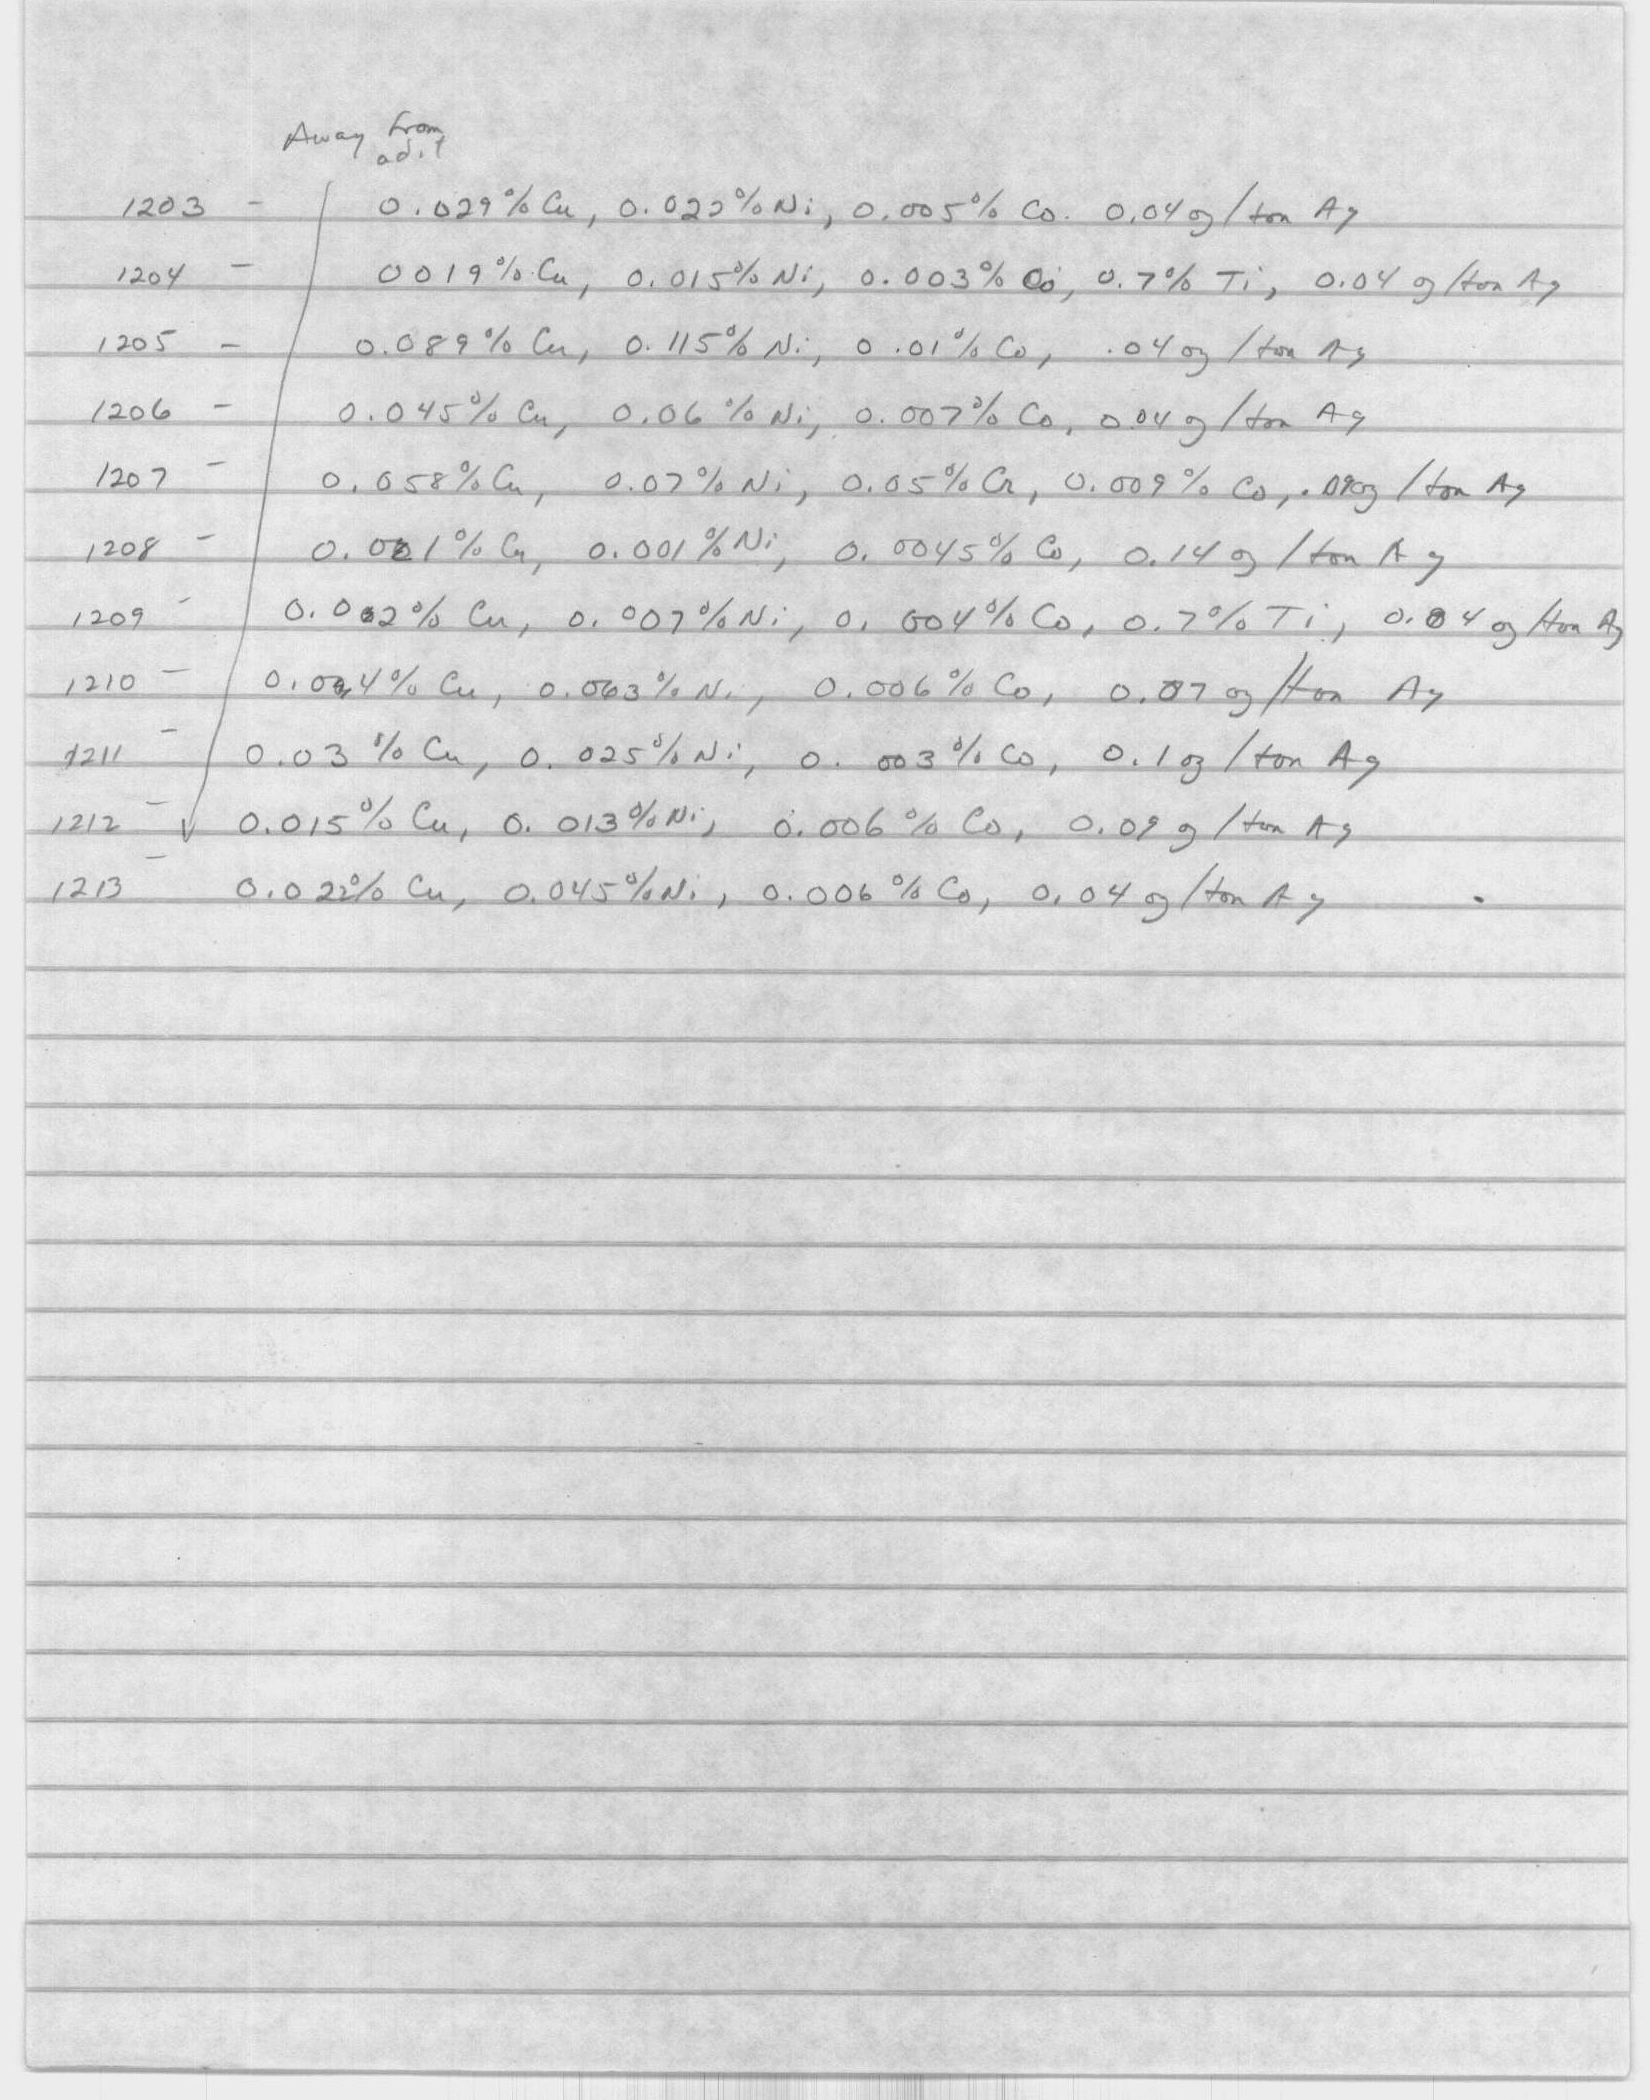 Away from
adit
1203 - 0.029% Cu, 0.022% Ni, 0.005% Co. 0.04 oz/ton Ag
1204 - 0019% Cu, 0.015% Ni, 0.003% Co, 0.7% Ti, 0.04 oz/ton Ag
1205 - 0.089% Cu, 0.115% Ni, 0.01% Co, .04 oz/ton Ag
1206 - 0.045% Cu, 0.06% Ni, 0.007% Co, 0.04 oz/ton Ag
1207 - 0.058% Cu, 0.07% Ni, 0.05% Cr, 0.009% Co, oz/ton Ag
1208 - 0.001% Cu, 0.001% Ni, 0.0045% Co, 0.14 oz/ton Ag
1209 - 0.002% Cu, 0.007% Ni, 0.004% Co, 0.7% Ti, 0.04 oz/ton Ag
1210 - 0.004% Cu, 0.003% Ni, 0.006% Co, 0.07 oz/ton Ag
1211 - 0.03% Cu, 0.025% Ni, 0.003% Co, 0.1 oz/ton Ag
1212 - 0.015% Cu, 0.013% Ni, 0.006% Co, 0.09 oz/ton Ag
1213 - 0.022% Cu, 0.045% Ni, 0.006% Co, 0.04 oz/ton Ag